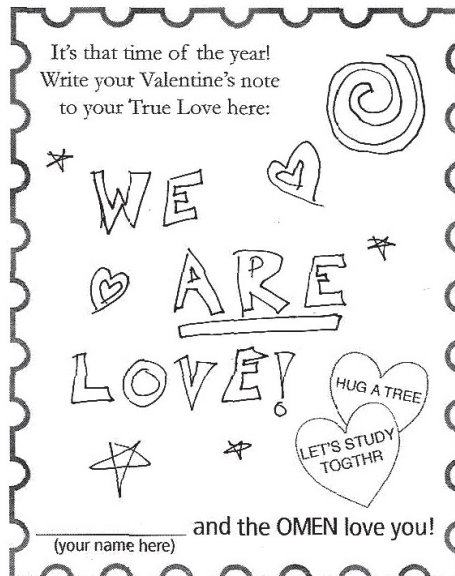 It's that time of the year!
Write your Valentine's note
to your True Love here:
WE
ARE
LOVE!
HUG A TREE
LET'S STUDY
TOGTHR
and the OMEN love you!
(your name here)